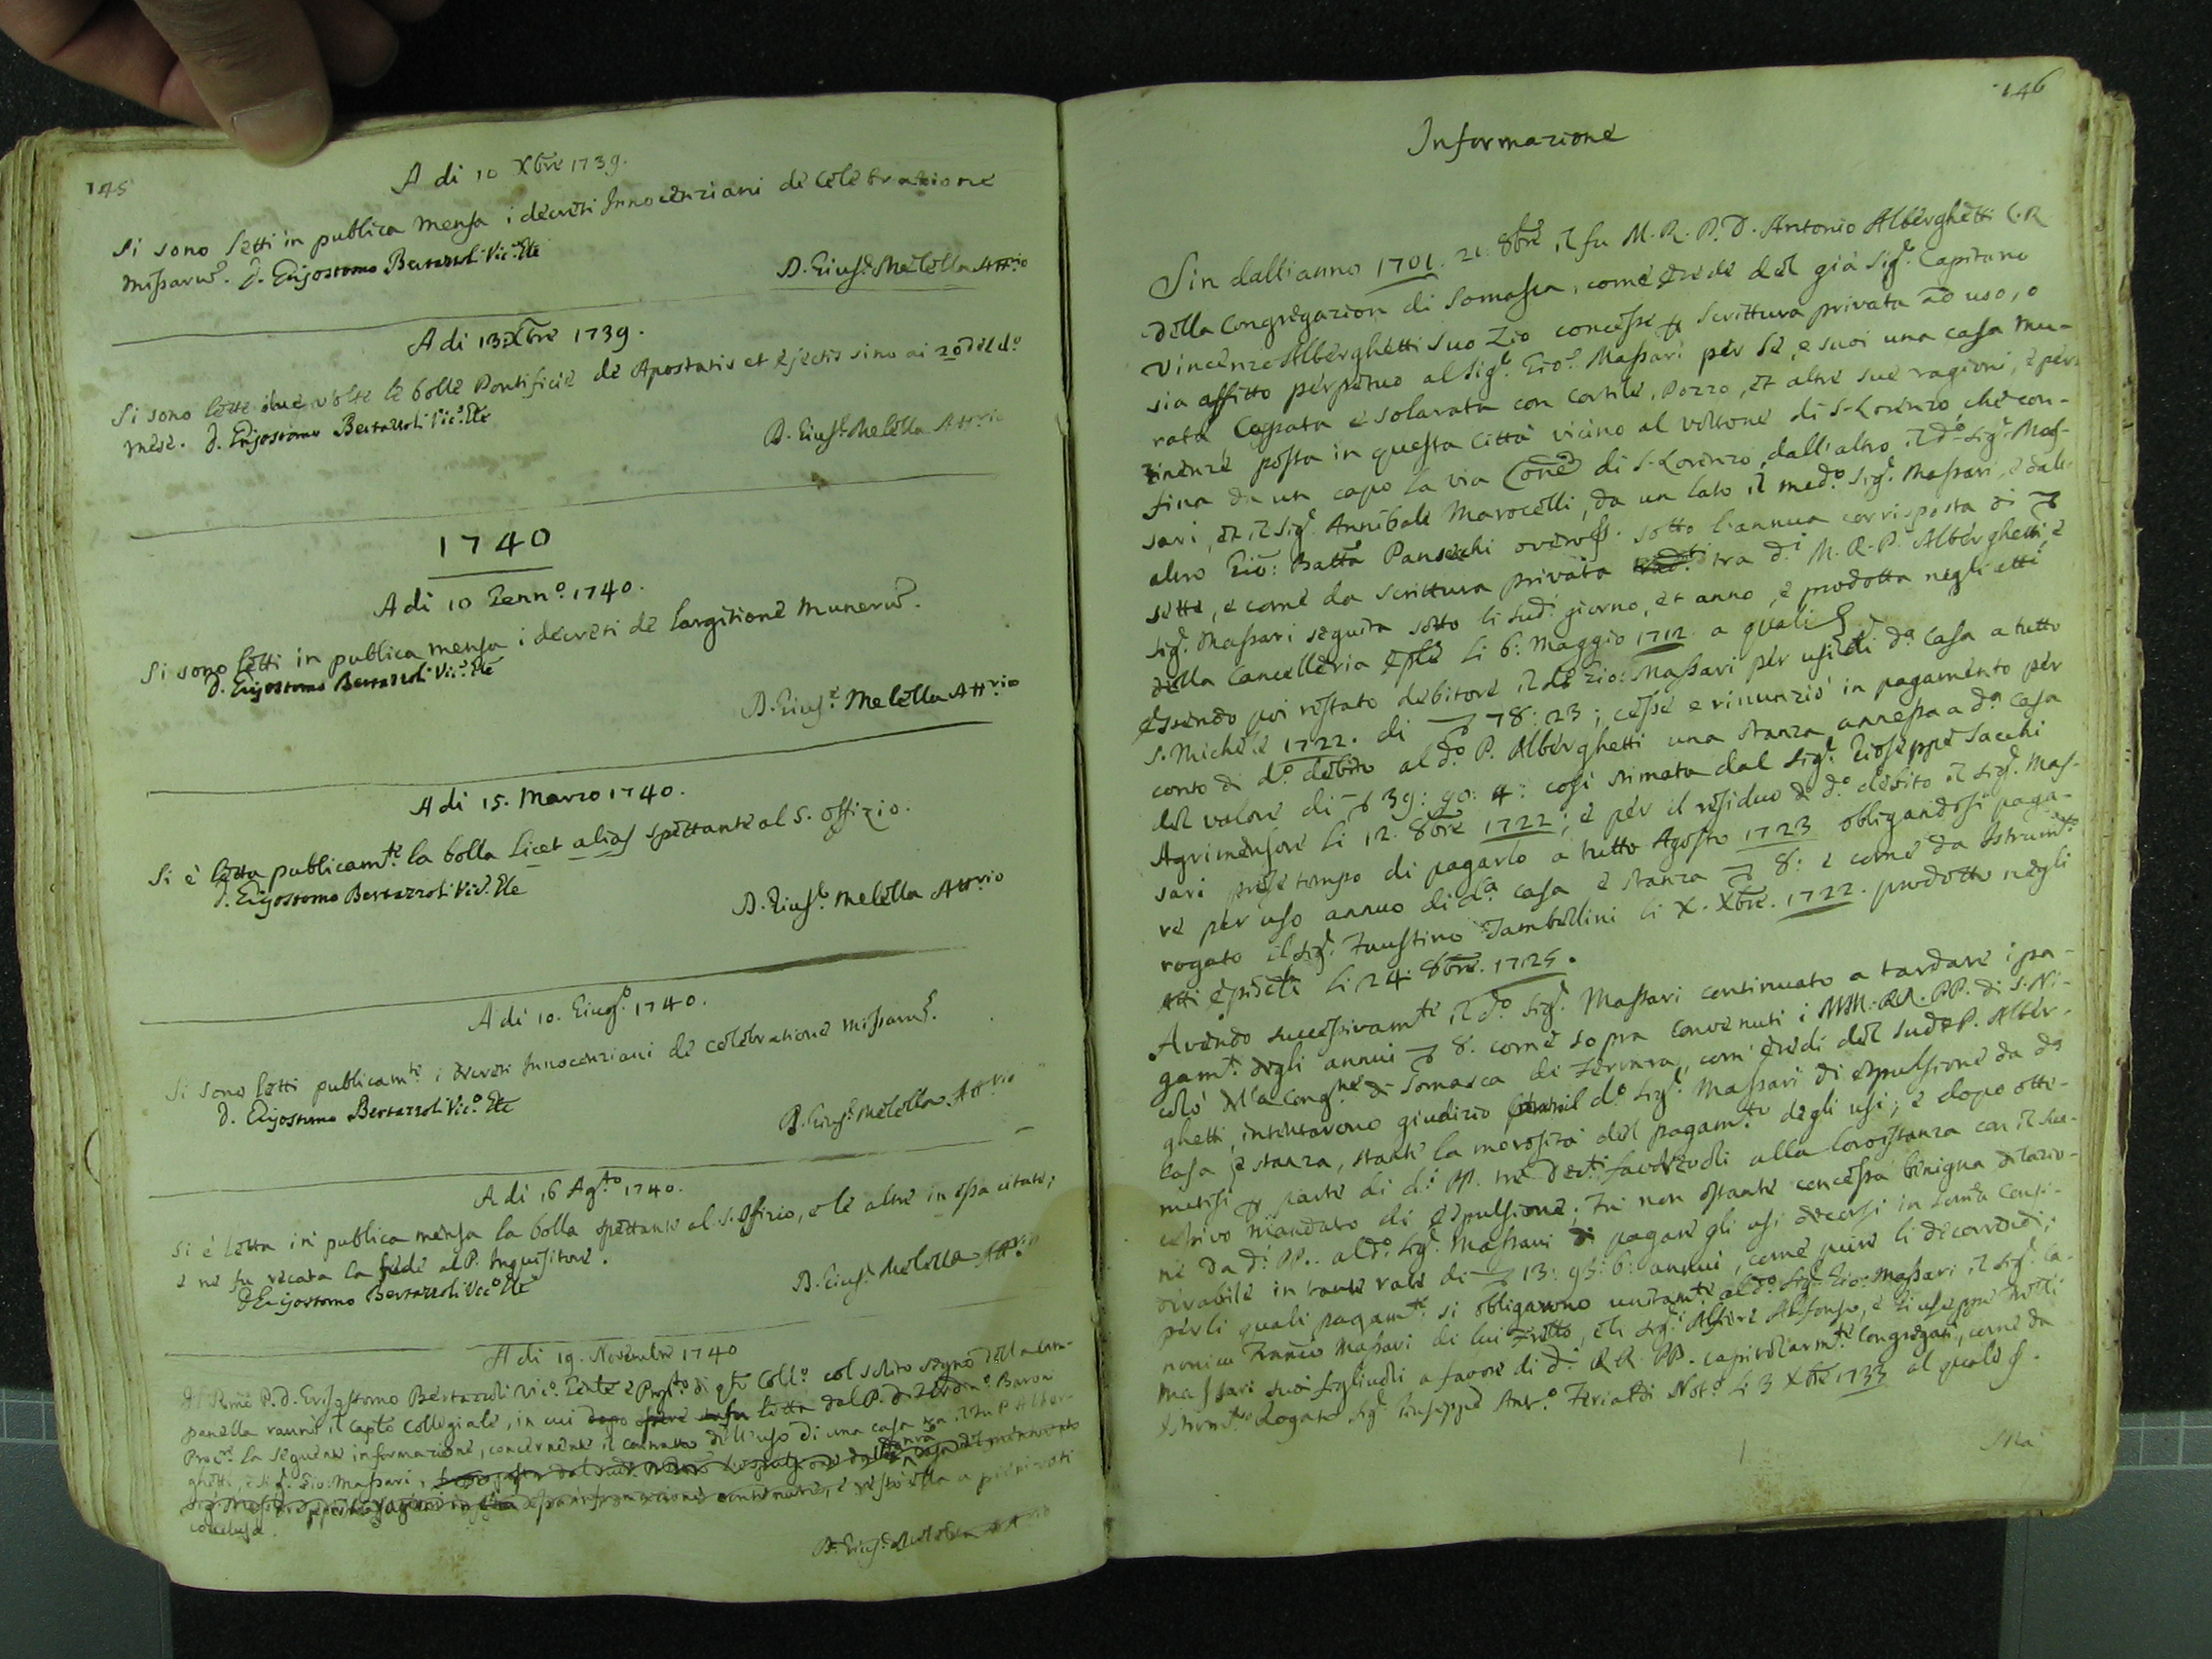 145
A di 10 Xbre 1739.
Si sono letti in publica mensa i decreti Innocenziani de celebratione
Missarũ. D. Grisostomo Bertazzoli Vic.º Ele
D. Gius.e Melella Att.rio
A di 13 Xbre 1739.
Si sono lette due volte le bolle Pontificie de Apostatis et ejectis sino ai 20 del d.º
mese. D. Grisostomo Bertazzoli Vic.º Ele
D. Gius.e Melella Att.rio
1740
A di 10 Genn.º 1740.
Si sono letti in publica mensa i decreti de largitione munerũ.
D. Grisostomo Bertazzoli Vic.º Ele
D. Gius.e Melella Att.rio
A di 15. Marzo 1740.
Si è letta publicam.te la bolla Licet alias spettante al S. Offizio.
D. Grisostomo Bertazzoli Vic.º Ele
D. Gius.e Melella Att.rio
A di 10. Giug.º 1740.
Si sono letti publicam.te i decreti Innocenziani de celebratione Missarũ.
D. Grisostomo Bertazzoli Vic.º Ele
D. Gius.e Melella Att.rio
A di 16 Ag.to 1740.
Si è letta in publica mensa la bolla spettante al S. Offizio, e le altre in essa citate;
e ne fu recata la fede al P. Inquisitore.
D. Grisostomo Bertazzoli Vic.º Ele
D. Gius.e Melella Att.rio
A di 19. Novembre 1740
Il Rmo P. D. Grisostomo Bertazzoli Vic.º Gnle e Prop.to di q.to Coll.º col solito segno della cam-
panella raunò il Caplo Collegiale, in cui dopo letta dal P. D. Baron
Proc.re la seguente informazione, concernente il contratto dell'uso di una casa tra il fu P. Alber-
ghetti, e Sig.r Gio: Massari, 
 essa informazione e restò ella a pieni voti
conclusa.
D. Gius.e Melella Att.rio
146
Informazione
Sin dall'anno 1701. 21. 8bre il fu M. R. P. D. Antonio Alberghetti C. R.
della Congregazion di Somasca, come erede del già Sig.r Capitano
Vincenzo Alberghetti suo Zio concesse p scrittura privata ad uso, o
sia affitto perpetuo al Sig.r Gio: Massari per se, e suoi una casa mu-
rata cuppata e solarata con cortile, pozzo, et altre sue ragioni, e per-
tinenze posta in questa Città vicino al voltone di S. Lorenzo, che con-
fina da un capo la via Cone di S. Lorenzo, dall'altro il d.º Sig.r Mas-
sari, et il Sig.r Annibale Marocelli, da un lato il med.º Sig.r Massari, e dall'
altro Gio: Batta Pansechi overo sotto l'annua corrisposta di
sette, e come da scrittura privata tra d.i M. R. P. Alberghetti, e
Sig.r Massari seguita sotto li sud.i giorno, et anno, e prodotta negli atti
della Cancelleria Eple li 6: Maggio 1712 a quali
Essendo poi restato debitore il d.º Gio: Massari per usi di d.a Casa a tutto
S. Michele 1722. di 78: 23; cesse e rinunziò in pagamento per
conto di d.º debito al d.º P. Alberghetti una stanza annessa a d.a casa
del valore di 39: 90: 4: così stimata dal Sig.r Gioseppe Sacchi
Agrimensore li 12. 8bre 1722; e per il residuo di d.º debito il Sig.r Mas-
sari prese tempo di pagarlo a tutto Agosto 1723 obligandosi paga-
re per uso annuo di d.a casa e stanza 8: e come da Istrum.to
rogato il Sig.r Faustino Tambellini li X. Xbre. 1722. prodotto negli
Atti Episcli li 24. 8bre. 1725.
Avendo successivam.te il d.º Sig.r Massari continuato a tardare i pa-
gam.ti degli annui 8. come sopra convenuti i MM. RR. PP. di S. Ni-
colò della Cong.ne di Somasca di Ferrara, com' eredi del sud.º P. Alber-
ghetti, intentarono giudizio il d.º Sig.r Massari di espulsione da d.a
Casa, e stanza, stante la morosità del pagam.to degli usi; e dopo otte-
nutesi p parte di d.i PP. tre decti favorevoli alla loro istanza con il suc-
cessivo mandato di espulsione; Fu non ostante concessa benigna dilazio-
ne da d.i PP. al d.º Sig.r Massari di pagare gli usi decorsi in soma consi-
derabile in tante rate di 13: 93: 6: annui, come pure li decorrendi;
per li quali pagam.ti si obligarono unitam.te al d.º Sig.r Gio: Massari il Sig.r Ca-
nonico Franco Massari di lui Fratello, e li Sig.ri Alfiere Alfonso, e Giuseppe fratelli
Massari suoi figliuoli a favore di d.i RR. PP. capitolarm.te Congregati, come da
Istrum.to Rogato Sig.r Giuseppe Ant.º Feriardi Not.º li 3 Xbre 1733 al quale
Ma